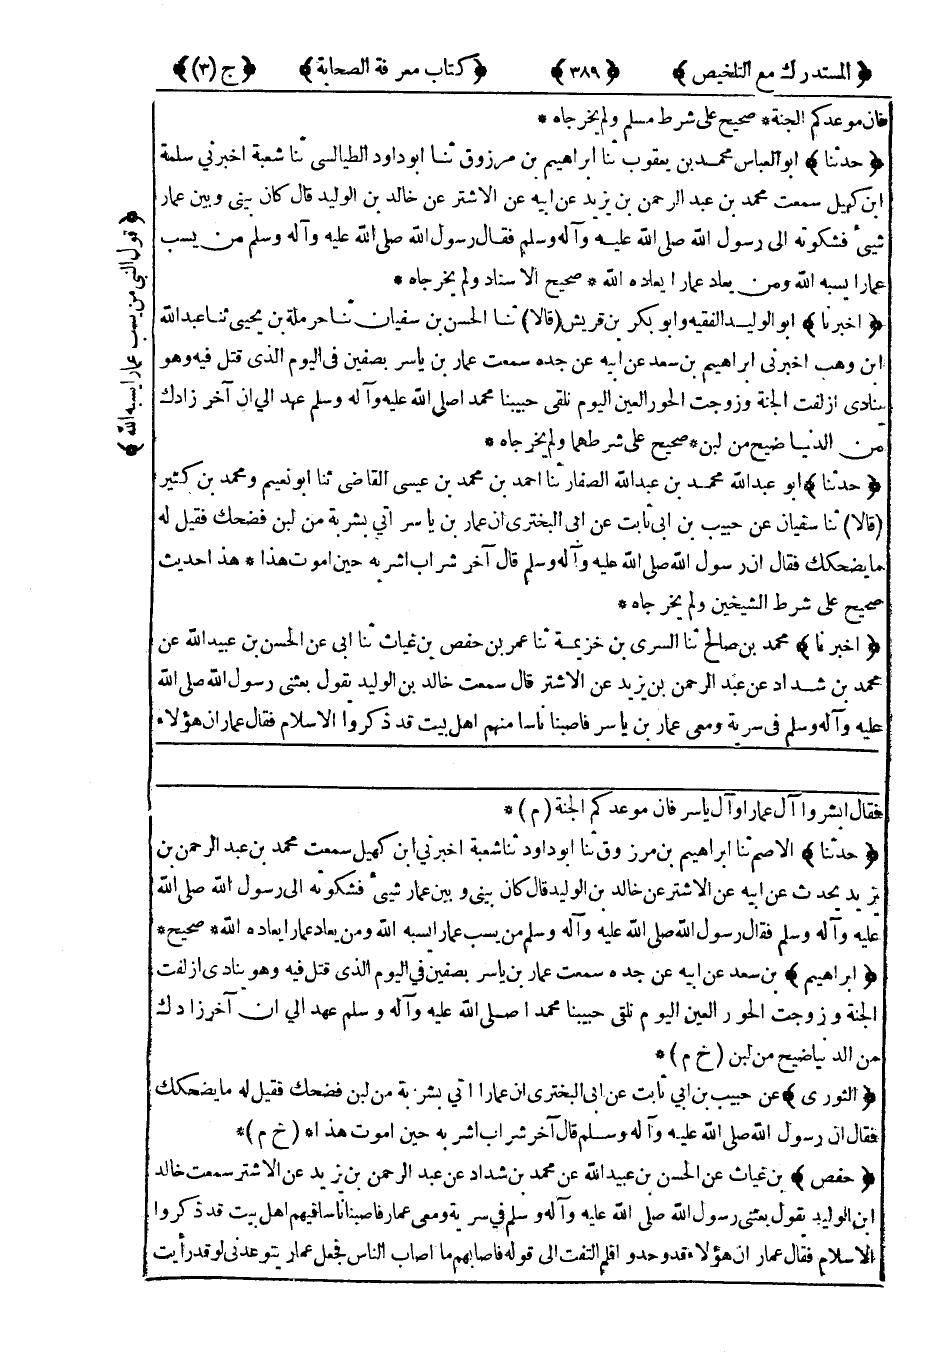 ﴿ المستدرك مع التلخيص ﴾ ﴿ ٣٨٩ ﴾ ﴿ كتاب معرفة الصحابة ﴾ ﴿ ج (٣) ﴾
فان موعدكم الجنة * صحيح على شرط مسلم ولم يخرجاه *
﴿ حدثنا ﴾ ابو العباس محمد بن يعقوب ثنا ابراهيم بن مرزوق ثنا ابو داود الطيالسى ثنا شعبة اخبرنى سلمة
ابن كهيل سمعت محمد بن عبد الرحمن بن يزيد عن ابيه عن الاشتر عن خالد بن الوليد قال كان بينى وبين عمار
شيئ فشكوته الى رسول الله صلى الله عليه وآله وسلم فقال رسول الله صلى الله عليه وآله وسلم من يسب
عمارا يسبه الله ومن يعاد عمارا يعاده الله * صحيح الاسناد ولم يخرجاه *
﴿ اخبرنا ﴾ ابو الوليد الفقيه وابو بكر بن قريش (قالا) ثنا الحسن بن سفيان ثنا حرملة بن يحيى ثنا عبد الله
ابن وهب اخبرنى ابراهيم بن سعد عن ابيه عن جده سمعت عمار بن ياسر بصفين فى اليوم الذى قتل فيه وهو
ينادى ازلفت الجنة وزوجت الحور العين اليوم نلقى حبيبنا محمدا صلى الله عليه وآله وسلم عهد الى ان آخر زادك
من الدنيا ضيح من لبن * صحيح على شرطهما ولم يخرجاه *
﴿ حدثنا ﴾ ابو عبد الله محمد بن عبد الله الصفار ثنا احمد بن محمد بن عيسى القاضى ثنا ابو نعيم ومحمد بن كثير
(قالا) ثنا سفيان عن حبيب بن ابى ثابت عن ابى البخترى ان عمار بن ياسر اتى بشربة من لبن فضحك فقيل له
ما يضحكك فقال ان رسول الله صلى الله عليه وآله وسلم قال آخر شراب اشربه حين اموت هذا * هذا حديث
صحيح على شرط الشيخين ولم يخرجاه *
﴿ اخبرنا ﴾ محمد بن صالح ثنا السرى بن خزيمة ثنا عمر بن حفص بن غياث ثنا ابى عن الحسن بن عبيد الله عن
محمد بن شداد عن عبد الرحمن بن يزيد عن الاشتر قال سمعت خالد بن الوليد يقول بعثنى رسول الله صلى الله
عليه وآله وسلم فى سرية ومعى عمار بن ياسر فاصبنا ناسا منهم اهل بيت قد ذكروا الاسلام فقال عمار ان هؤلاء
﴿ قول النبى من يسب عمارا يسبه الله ﴾
فقال ابشروا آل عمار وآل ياسر فان موعدكم الجنة (م) *
﴿ حدثنا ﴾ الاصم ثنا ابراهيم بن مرزوق ثنا ابو داود ثنا شعبة اخبرنى ابن كهيل سمعت محمد بن عبد الرحمن بن
يزيد يحدث عن ابيه عن الاشتر عن خالد بن الوليد قال كان بينى وبين عمار شيئ فشكوته الى رسول الله صلى الله
عليه وآله وسلم فقال رسول الله صلى الله عليه وآله وسلم من يسب عمارا يسبه الله ومن يعاد عمارا يعاده الله * صحيح *
﴿ ابراهيم ﴾ بن سعد عن ابيه عن جده سمعت عمار بن ياسر بصفين فى اليوم الذى قتل فيه وهو ينادى ازلفت
الجنة وزوجت الحور العين اليوم نلقى حبيبنا محمدا صلى الله عليه وآله وسلم عهد الى ان آخر زادك
من الدنيا ضيح من لبن (خ م) *
﴿ الثورى ﴾ عن حبيب بن ابى ثابت عن ابى البخترى ان عمارا اتى بشربة من لبن فضحك فقيل له ما يضحكك
فقال ان رسول الله صلى الله عليه وآله وسلم قال آخر شراب اشربه حين اموت هذا * (خ م) *
﴿ حفص ﴾ بن غياث عن الحسن بن عبيد الله عن محمد بن شداد عن عبد الرحمن بن يزيد عن الاشتر سمعت خالد
ابن الوليد يقول بعثنى رسول الله صلى الله عليه وآله وسلم فى سرية ومعى عمار فاصبنا ناسا فيهم اهل بيت قد ذكروا
الاسلام فقال عمار ان هؤلاء قد وحدوا فلم التفت الى قوله فاصابهم ما اصاب الناس فجعل عمار يتوعدنى لو قد رأيت